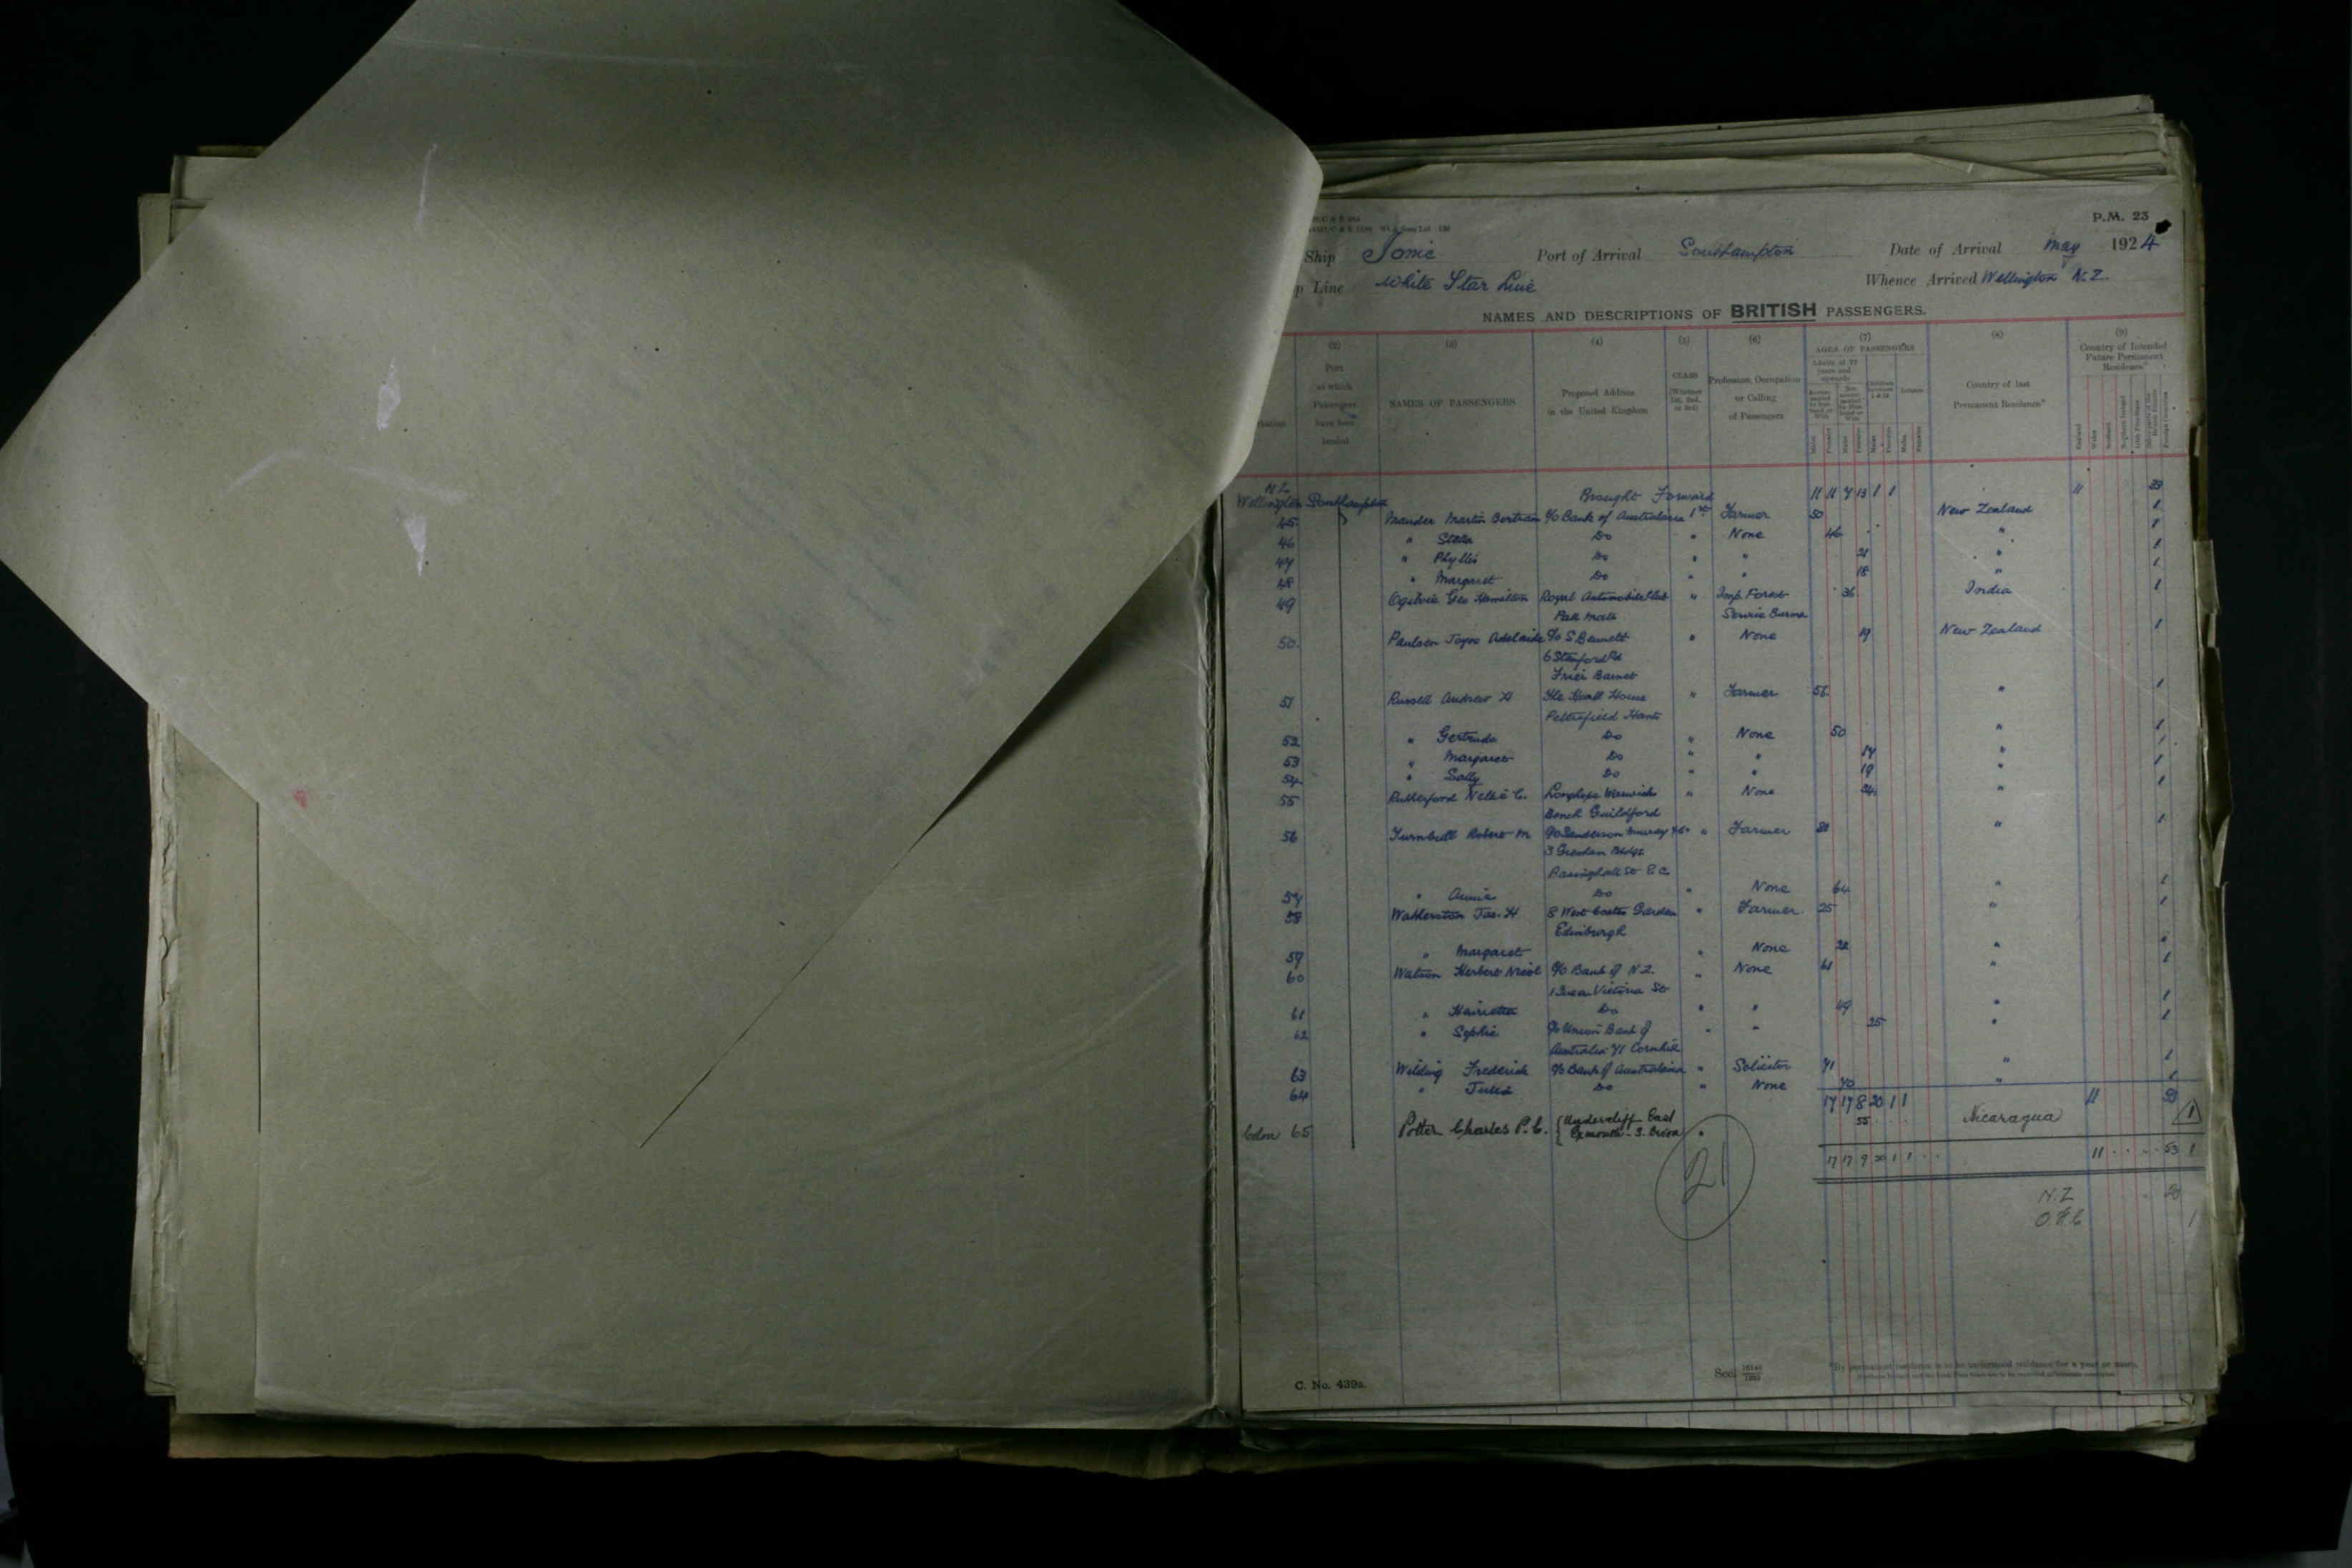 P.M. 23
Ship Ionic Port of Arrival Southampton Date of Arrival May 1924
Line White Star Line Whence Arrived Wellington N.Z.
NAMES AND DESCRIPTIONS OF BRITISH PASSENGERS.
(2) (3) (4) (5) (6) (7) (8) (9)
Port at which Passengers have been landed
NAMES OF PASSENGERS
Proposed Address in the United Kingdom
CLASS (Whether 1st, 2nd, or 3rd)
Profession, Occupation or Calling of Passengers
AGES OF PASSENGERS
Adults of 12 years and upwards
Country of last Permanent Residence*
Country of Intended Future Permanent Residence*
N.Z.
Wellington Southampton Brought Forward 11 11 7 13 1 1 11
45 Mander Martin Bertram c/o Bank of Australasia 1st Farmer 50 New Zealand 1
46 " Stella Do " None 46 " 1
47 " Phyllis Do " " 21 " 1
48 " Margaret Do " " 18 " 1
49 Ogilvie Geo Hamilton Royal Automobile Club " Imp. Forest 36 India 1
Pall Mall Service Burma
50. Paulsen Joyce Adelaide c/o S. Bennett " None 19 New Zealand 1
6 Stanford Rd
Frien Barnet
51 Russell Andrew H House " Farmer 56 " 1
Petersfield Hants
52 " Gertrude Do " None 50 " 1
53 " Margaret Do " " " 1
54 " Sally Do " " 19 " 1
55 Rutherford Nellie C. Warwicks " None " 1
Bench Guildford
56 Turnbull Robert M c/o Sanderson Murray & Co " Farmer " 1
3 Gresham Bldgs
Basinghall St E.C.
57 " Annie Do " None 64 " 1
58 Watterston Jas. H 8 West Castle Garden " Farmer. 25 " 1
Edinburgh
59 " Margaret " None 22 "
60 Watson Herbert Nicol c/o Bank of N.Z. " None 61 " 1
1 Queen Victoria St
61 " Henrietta Do " " 49 " 1
62 " Sophie c/o Union Bank of " " 25 " 1
Australia 71 Cornhill
63 Wilding Frederick c/o Bank of Australasia " Solicitor 71 " 1
64 " Julia Do " None 70 " 1
17 17 8 20 1 1 11 53
Colon 65 Potter Charles P. C. Undercliff East " 55 Nicaragua 1
Exmouth. S. Devon
17 17 9 20 1 1 11 53 1
21
N.Z
O.F.C 1
C. No. 439a.
*By permanent residence is to be understood residence for a year or more.